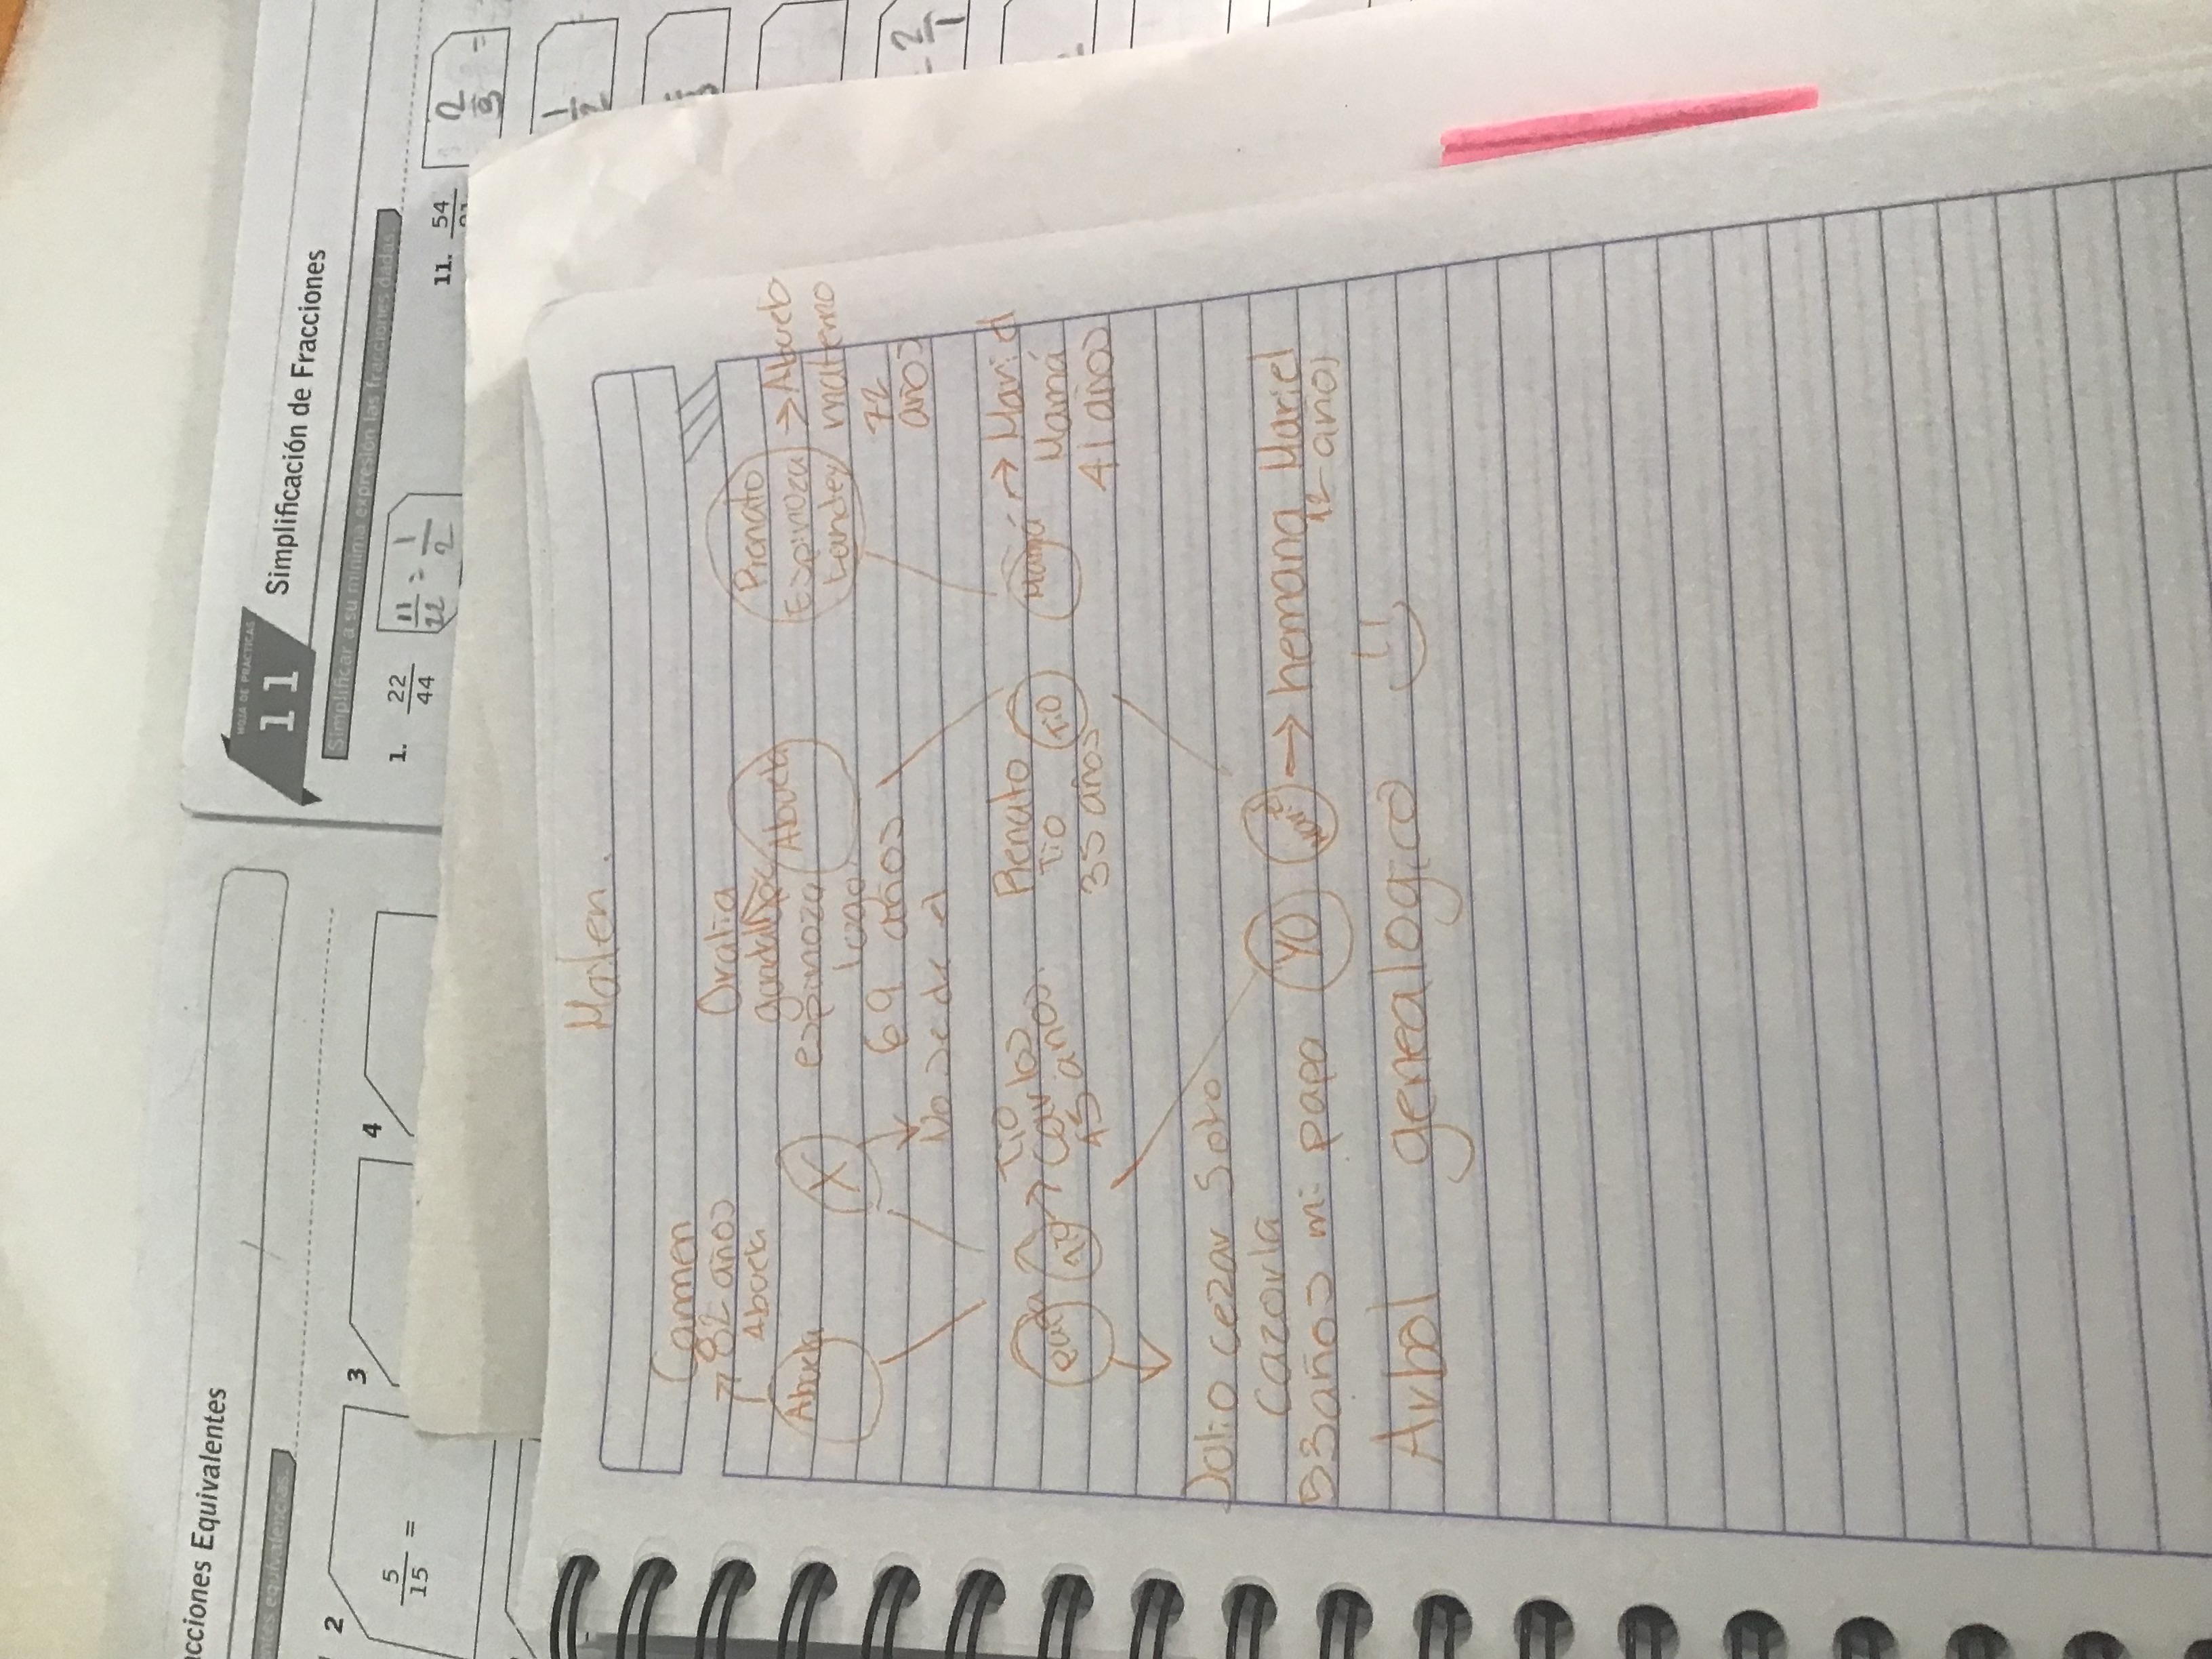 Simplificación de Fracciones
HOJA DE PRÁCTICAS
11
Simplificar a su mínima expresión las fracciones dadas
1. 22/44
11/22 = 1/2
11. 54
2/3 =
1/2
2/1
cciones Equivalentes
2
5/15 =
3
4
Mailen.
Carmen
82 años
Abuela
Abuela
X
No se de el
Oralia
espinoza
69 años
Abuela
Renato
Espinoza
Landey
→ Abuelo
materno
72
años
papá
tio
→ Carlos
tio
45 años.
Renato
tio
35 años
tio
Mamá → Mariel
Mamá
41 años
Julio cezar Soto
Cazorla
53 años mi papa
YO
→ hemana Mariel
12 años
Arbol genealogico